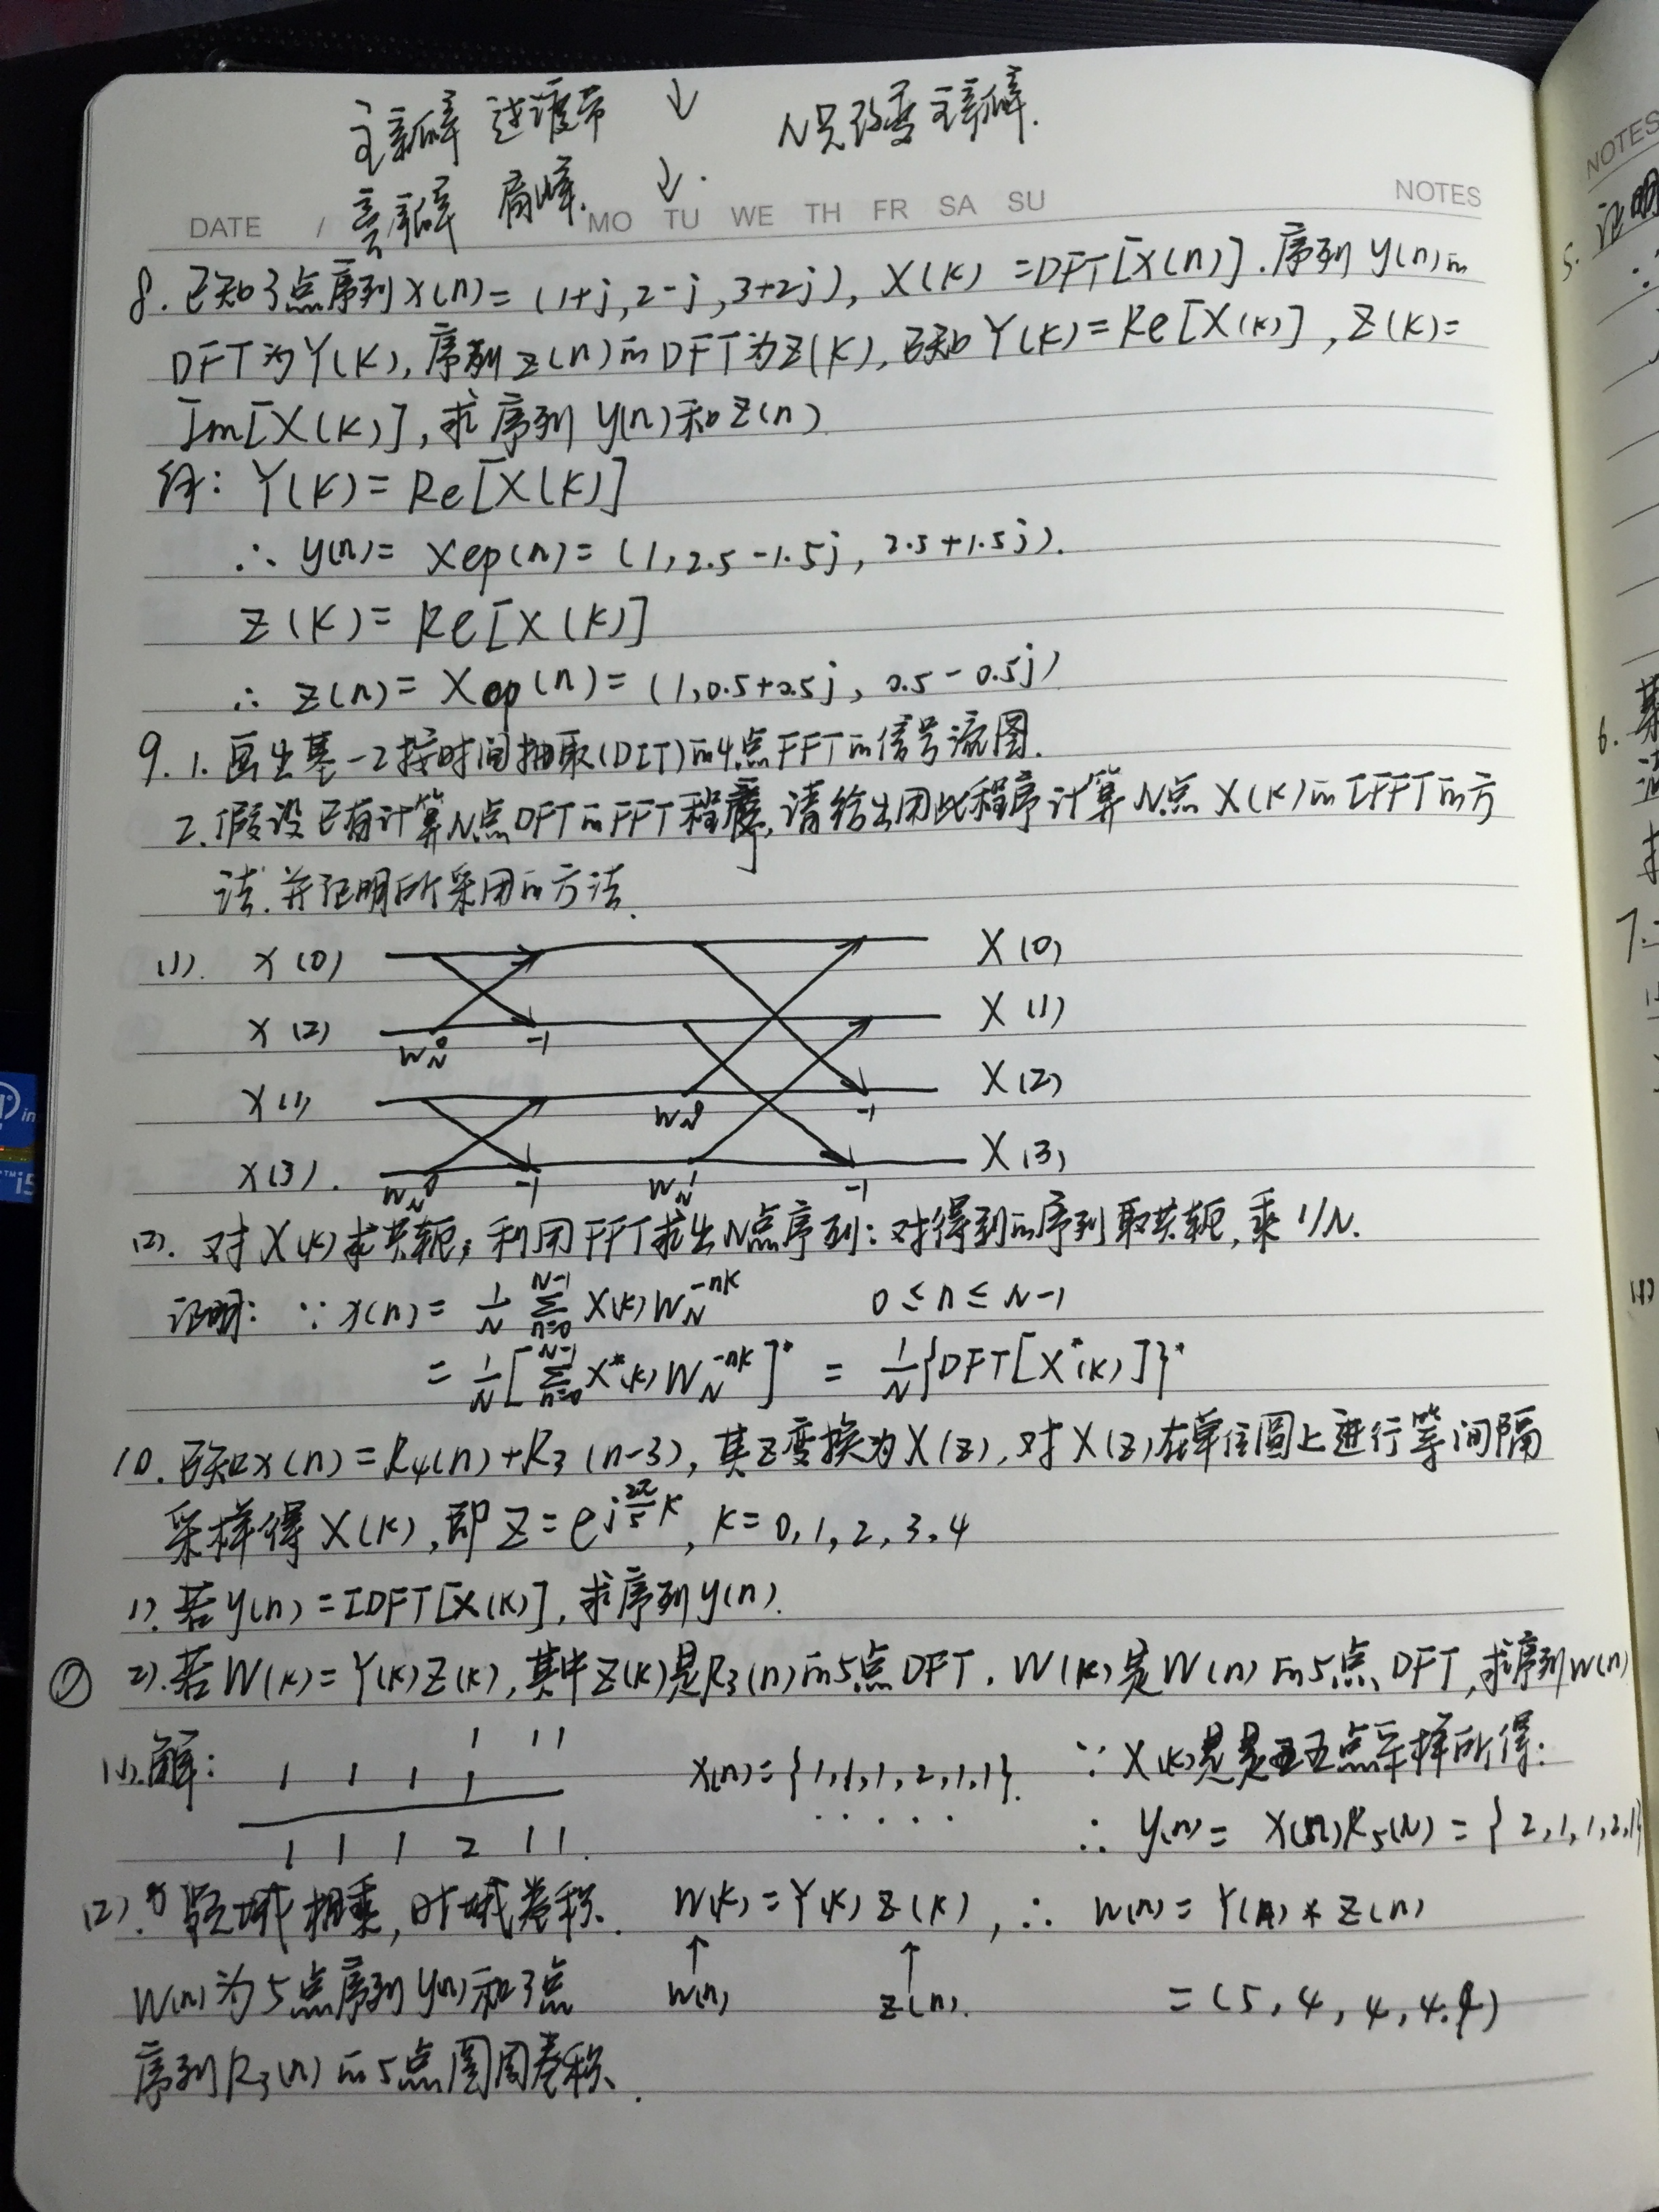 主瓣 过渡带 ↓ N只改变主瓣.
旁瓣 肩峰. ↓.
DATE / MO TU WE TH FR SA SU NOTES
8. 已知3点序列x(n)=(1+j,2-j,3+2j), X(k)=DFT[x(n)].序列y(n)的
DFT为Y(k),序列z(n)的DFT为Z(k),已知Y(k)=Re[X(k)],Z(k)=
Im[X(k)],求序列y(n)和z(n)
解: Y(k)=Re[X(k)]
∴ y(n)= Xep(n)=(1,2.5-1.5j, 2.5+1.5j).
Z(k)= Re[X(k)]
∴ z(n)= Xop(n)=(1,0.5+0.5j, 0.5-0.5j)
9. 1. 画出基-2按时间抽取(DIT)的4点FFT的信号流图.
2. 假设已有计算N点DFT的FFT程序,请给出用此程序计算N点X(k)的IFFT的方
法.并证明所采用的方法.
(1). x(0) X(0)
x(2) W_N^0 -1 X(1)
x(1) W_N^0 -1 X(2)
x(3). W_N^0 -1 W_N^1 -1 X(3)
(2). 对X(k)求共轭; 利用FFT求出N点序列; 对得到的序列取共轭,乘1/N.
证明: ∵ x(n)= 1/N ∑_{n=0}^{N-1} X(k)W_N^{-nk} 0≤n≤N-1
= 1/N[∑_{n=0}^{N-1} X*(k)W_N^{-nk}]* = 1/N{DFT[X*(k)]}*
10. 已知x(n)=R4(n)+R3(n-3),其Z变换为X(z),对X(z)在单位圆上进行等间隔
采样得X(k),即Z=e^{j2π/5 k}, k=0,1,2,3,4
1). 若y(n)=IDFT[X(k)],求序列y(n).
② 2).若W(k)=Y(k)Z(k),其中Z(k)是R3(n)的5点DFT. W(k)是W(n)的5点DFT,求序列w(n)
(1).解: 1 1 1
1 1 1 1 x(n)={1,1,1,2,1,1}. ∵ X(k)是是五点采样所得:
1 1 1 2 1 1. ∴ y(n)= x(n)R5(N)={2,1,1,2,1}
(2). 频域相乘,时域卷积. W(k)=Y(k)Z(k), ∴ w(n)=Y(n)*Z(n)
W(n)为5点序列y(n)和3点 ↑ w(n) ↑ z(n). =(5,4,4,4,4)
序列R3(n)的5点圆周卷积.
NOTES
5. 证明
6.
7.
in
i5